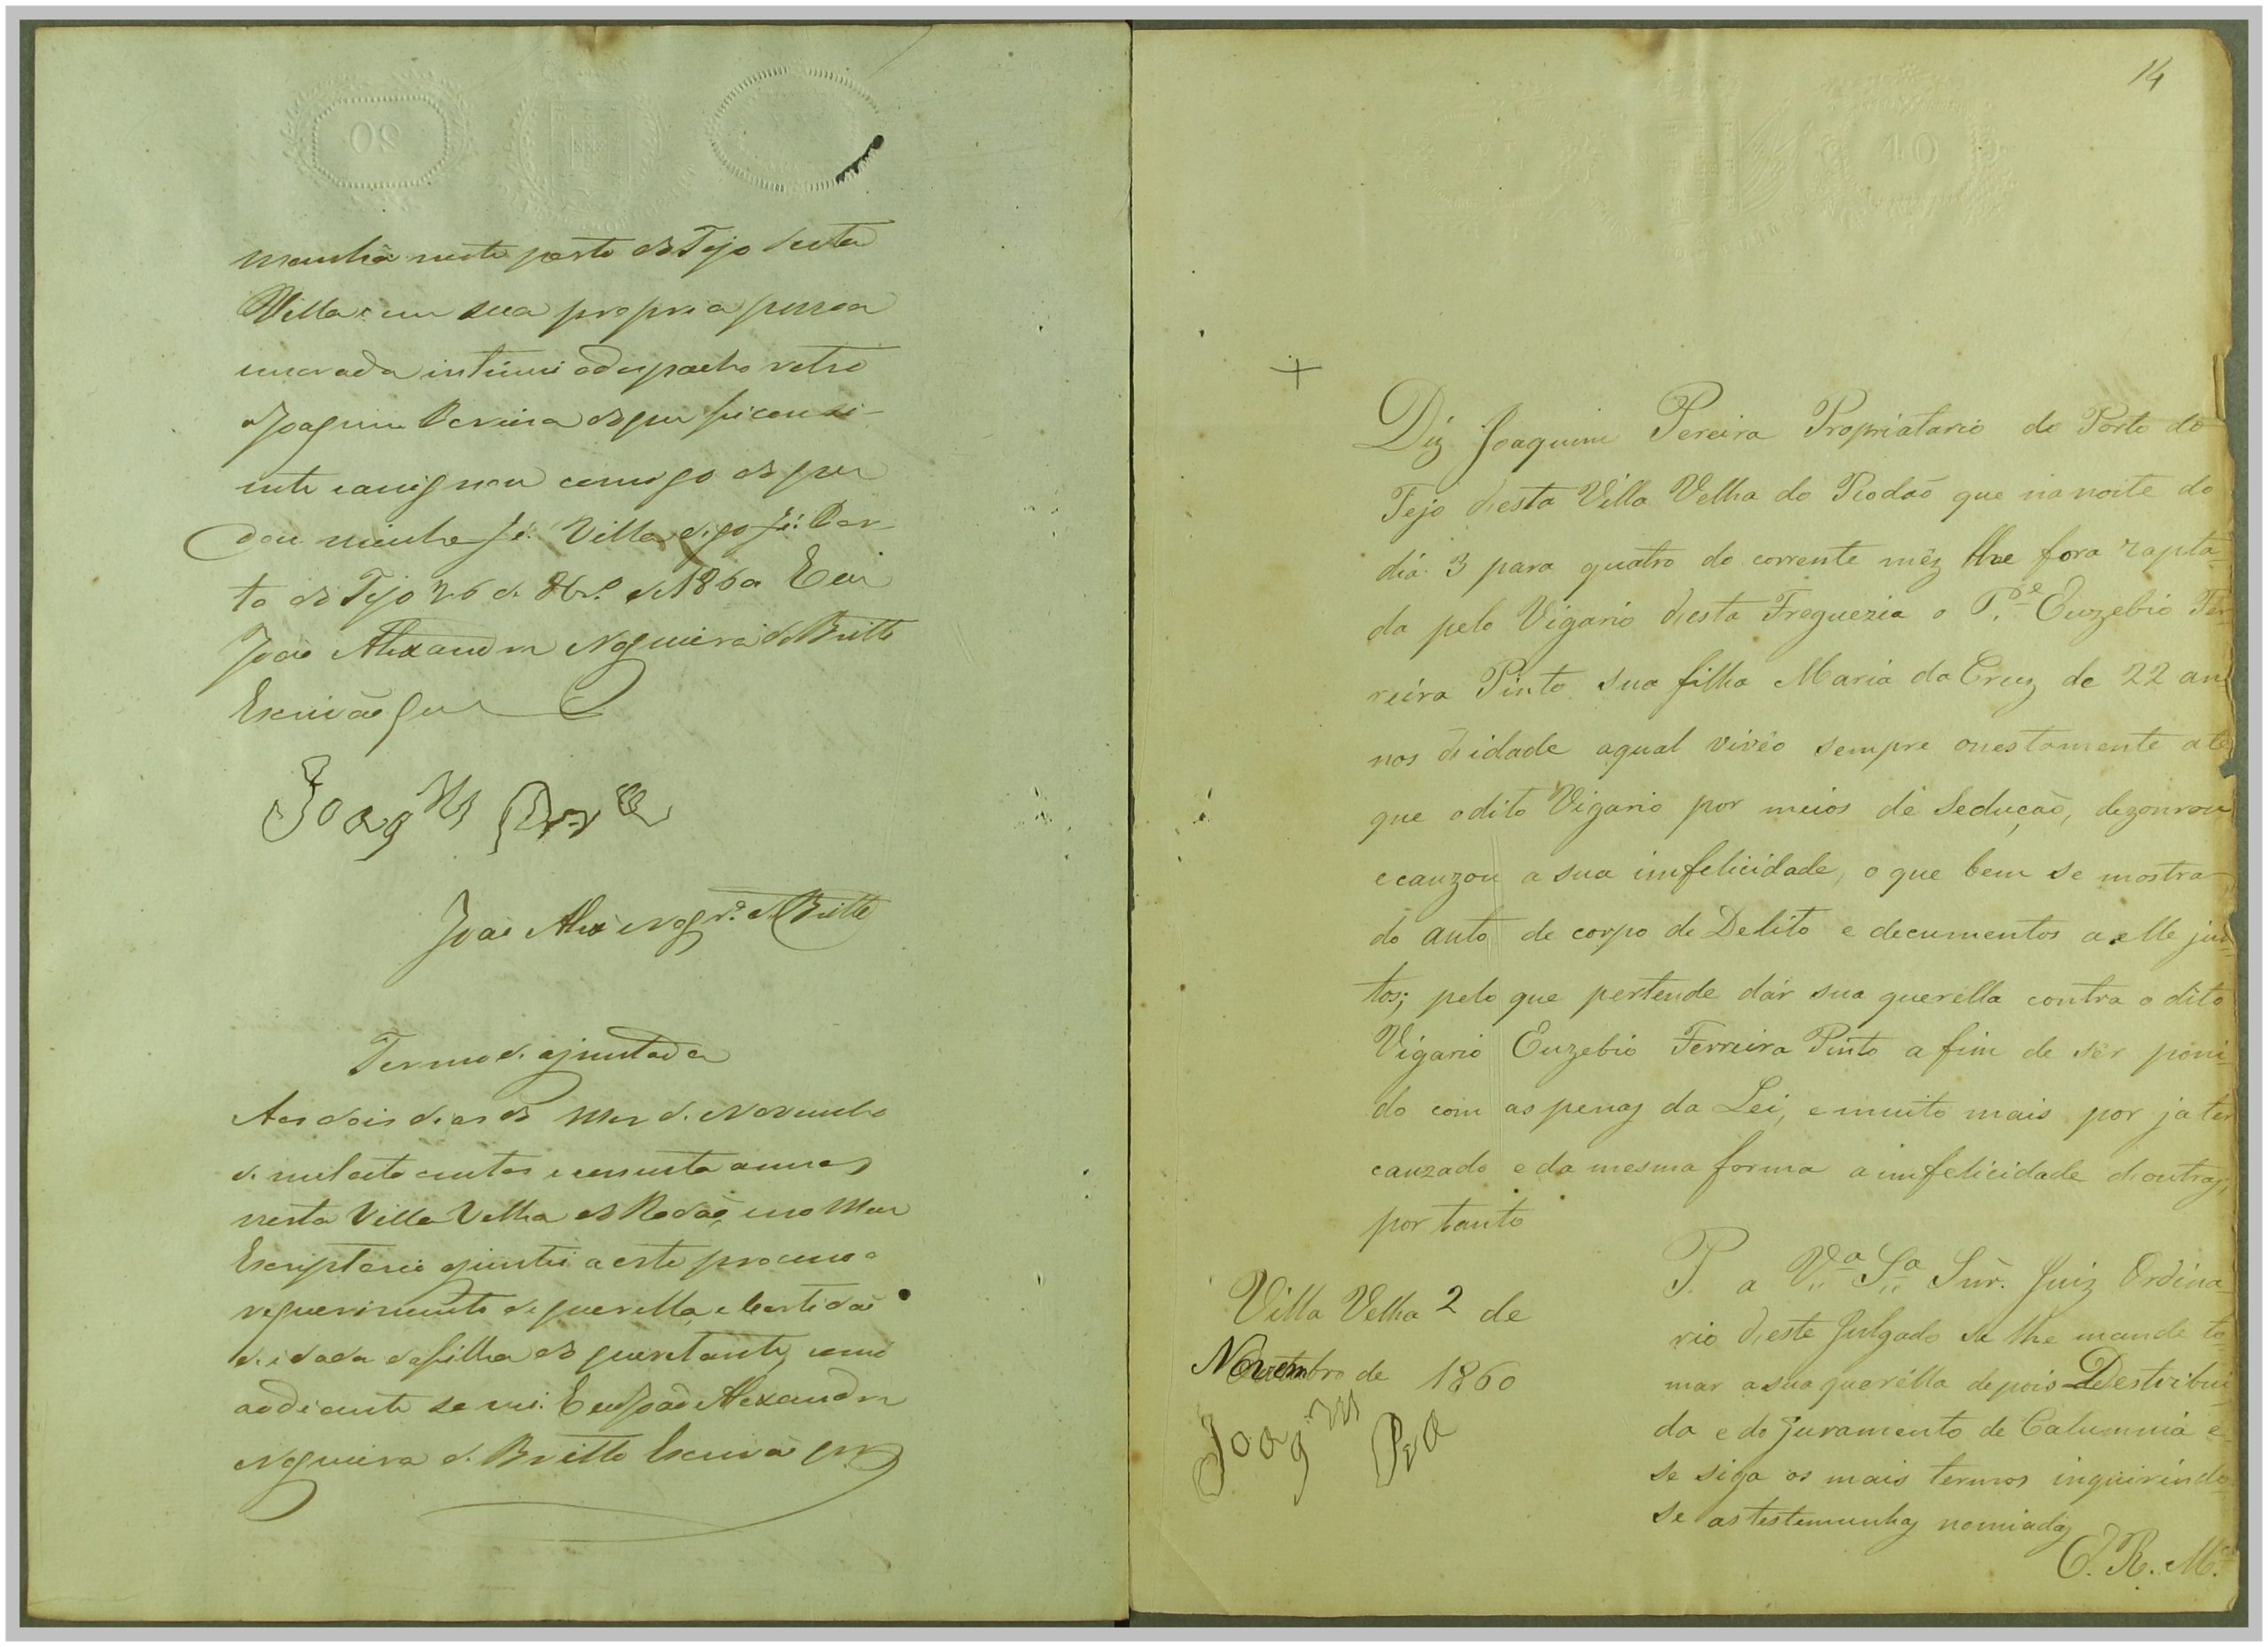 20
manhã neste porto do Tejo desta
Villa em sua propria pessoa
intimei o despacho retro
a Joaquim Pereira do que ficou sci-
ente e assignou comigo do que
dou minha fé. Villa digo fé. Por-
to do Tejo 26 de 8br.º de 1860 Eu
João Alexandre Nogueira de Britto
Escrivão que
Joaq m Per ra
João Alex e Nogr.ª de Britto
Termo de ajuntada
Aos dois dias do Mes de Novembro
de mil oito centos e sessenta annos
nesta Villa Velha do Rodaõ, e no Meu
Escriptorio ajuntei a este processo o
requerimento de querella, e Certidaõ
de idade da filha do querelante, como
ao diante se vê. E eu João Alexandre
Nogueira de Britto Escrivaõ
14
40
Diz Joaquim Pereira Propriatario do Porto do
Tejo desta Villa Velha do Rodaõ que na noite do
dia 3 para quatro do corrente mêz lhe fora rapta-
da pelo Vigario desta Freguezia o P.e Euzebio Fer-
reira Pinto sua filha Maria da Cruz de 22 an-
nos de idade aqual vivêo sempre onestamente ate
que odito Vigario por meios de Seduçaõ, dezonrou
ecauzou a sua imfelicidade, o que bem se mostra
do auto de corpo de Delito e decumentos a elle jun-
tos; pelo que pertende dár sua querélla contra o dito
Vigario Euzebio Ferreira Pinto a fim de sêr poni-
do com as penas da Lei, emuito mais por ja ter
cauzado eda mesma forma aimfelicidade doutras,
por tanto
P. a V.a S.a Snr. Juiz Ordina-
rio deste Julgado se lhe mande to-
mar asua querélla depois Destribui-
da e do Juramento de Calumnia e
se siga os mais termos inquirindo-
se as testemunhas nomiadas
E. R. M.ce
Villa Velha 2 de
Novembro de 1860
Joaq m Pra